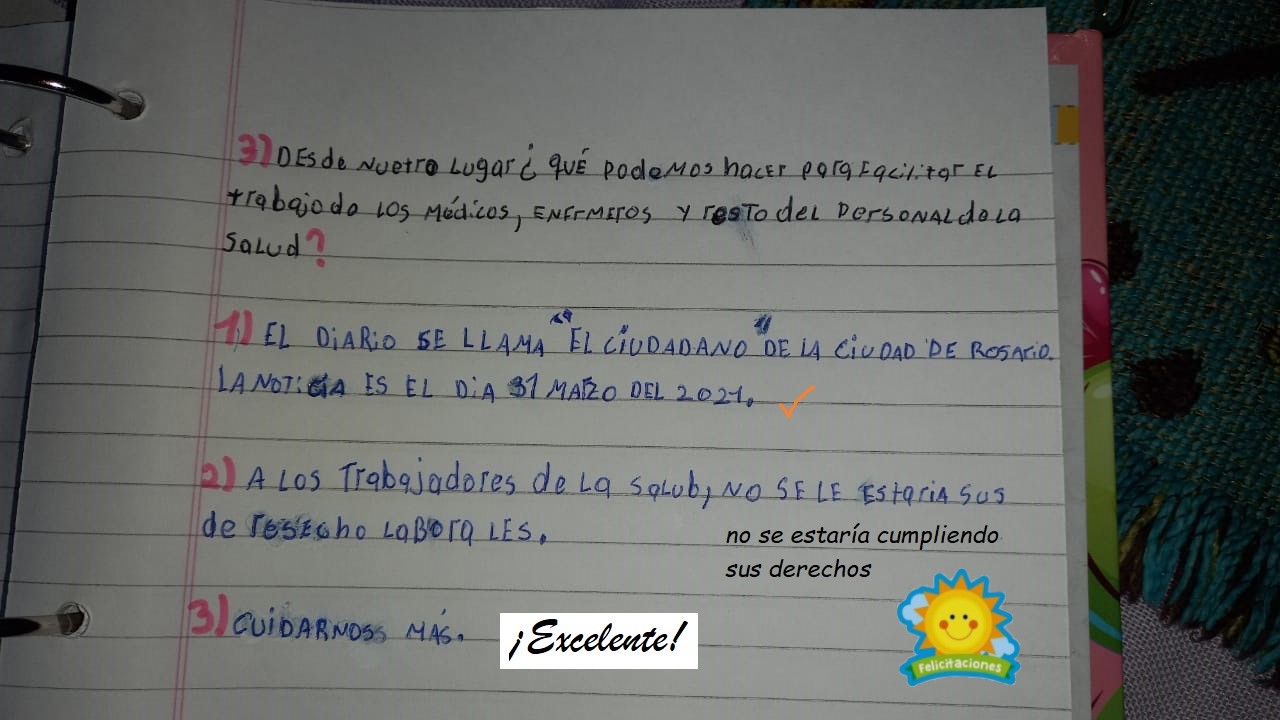 3) DEsde NUetro Lugar ¿ QUÉ PodeMos hacER para FaciLitar EL
trabajo de LOS Médicos, ENFrMEros Y resTo del PersoNAL de LA
SaLud?
1) EL DiARio SE LLAMA "EL CiUDADANO" DE LA CiUDAD DE ROSARiO.
LA NOTiCiA ES EL DiA 31 MARZO DEL 2021. ✓
2) A LOS Trabajadores de La saLub, NO SE LE EStariA SUS
de resecho LABOra LES.
no se estaría cumpliendo
sus derechos
3) CUiDARNOS MÁS.
¡Excelente!
Felicitaciones